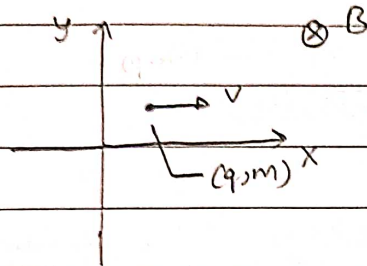 y
⊗ B
v
x
(q, m)